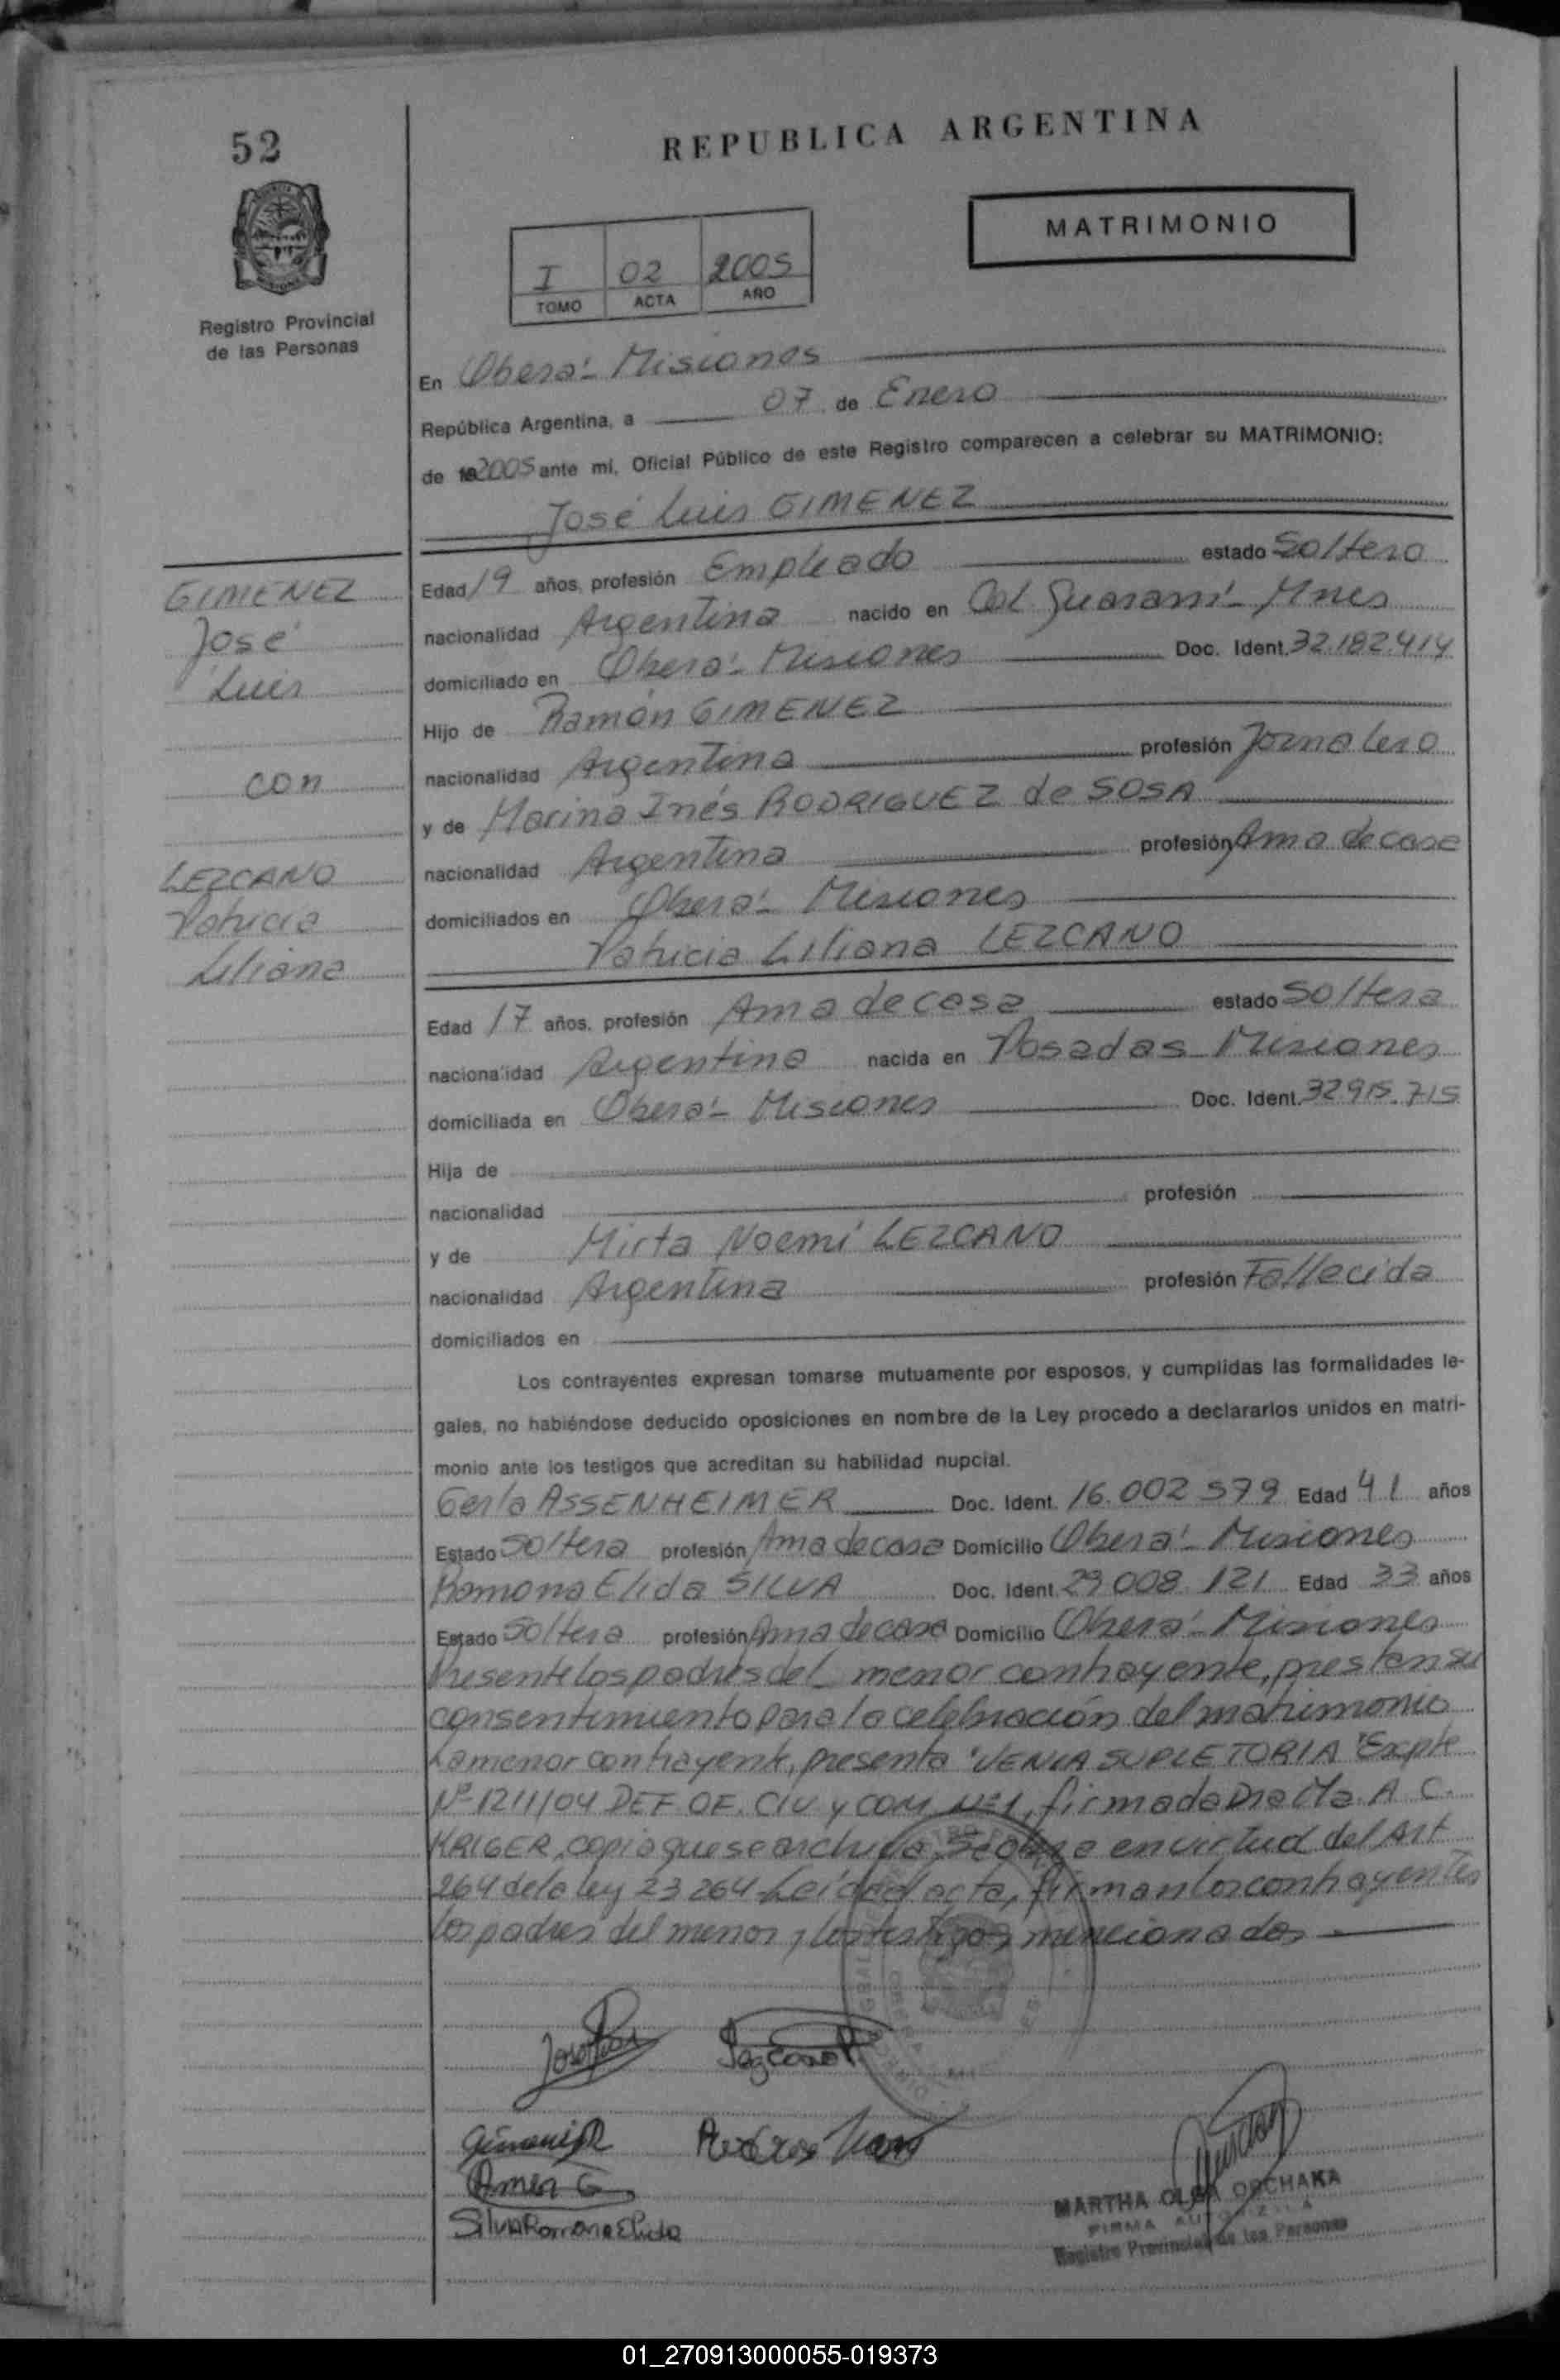 52
REPUBLICA ARGENTINA
MATRIMONIO
I 02 2005
TOMO ACTA AÑO
Registro Provincial
de las Personas
En Oberá - Misiones
República Argentina, a 07 de Enero
de 2005 ante mi, Oficial Público de este Registro comparecen a celebrar su MATRIMONIO:
José Luis GIMENEZ
GIMENEZ
José
Luis
con
LEZCANO
Patricia
Liliana
Edad 19 años, profesión Empleado estado Soltero
nacionalidad Argentina nacido en Col. Guaraní - Mnes
domiciliado en Oberá - Misiones Doc. Ident. 32.182.414
Hijo de Ramón GIMENEZ
nacionalidad Argentina profesión Jornalero
y de Marina Inés RODRIGUEZ de SOSA
nacionalidad Argentina profesión Ama de casa
domiciliados en Oberá - Misiones
Patricia Liliana LEZCANO
Edad 17 años, profesión Ama de casa estado Soltera
nacionalidad Argentina nacida en Posadas - Misiones
domiciliada en Oberá - Misiones Doc. Ident. 32.915.715
Hija de
nacionalidad profesión
y de Mirta Noemí LEZCANO
nacionalidad Argentina profesión Fallecida
domiciliados en
Los contrayentes expresan tomarse mutuamente por esposos, y cumplidas las formalidades le-
gales, no habiéndose deducido oposiciones en nombre de la Ley procedo a declararlos unidos en matri-
monio ante los testigos que acreditan su habilidad nupcial.
Gerla ASSENHEIMER Doc. Ident. 16.002.579 Edad 41 años
Estado Soltera profesión Ama de casa Domicilio Oberá - Misiones
Ramona Elida SILVA Doc. Ident. 29.008.121 Edad 33 años
Estado Soltera profesión Ama de casa Domicilio Oberá - Misiones
Presente los padres del menor contrayente, prestan su
consentimiento para la celebración del matrimonio
La menor contrayente, presenta "VENIA SUPLETORIA" Expte
Nº 1211/04 DEF. OF. CIV y COM Nº 1, firmada Dra Ma. A. C.
KRIGER, copia que se archiva. Se obra en virtud del Art
264 de la ley 23 264 - Leída el acta, firman los contrayentes
los padres del menor, los testigos mencionados
Gimenez R
Silva Ramona Elida
MARTHA OLGA ORCHAKA
FIRMA AUTORIZADA
Registro Provincial de las Personas
01_270913000055-019373